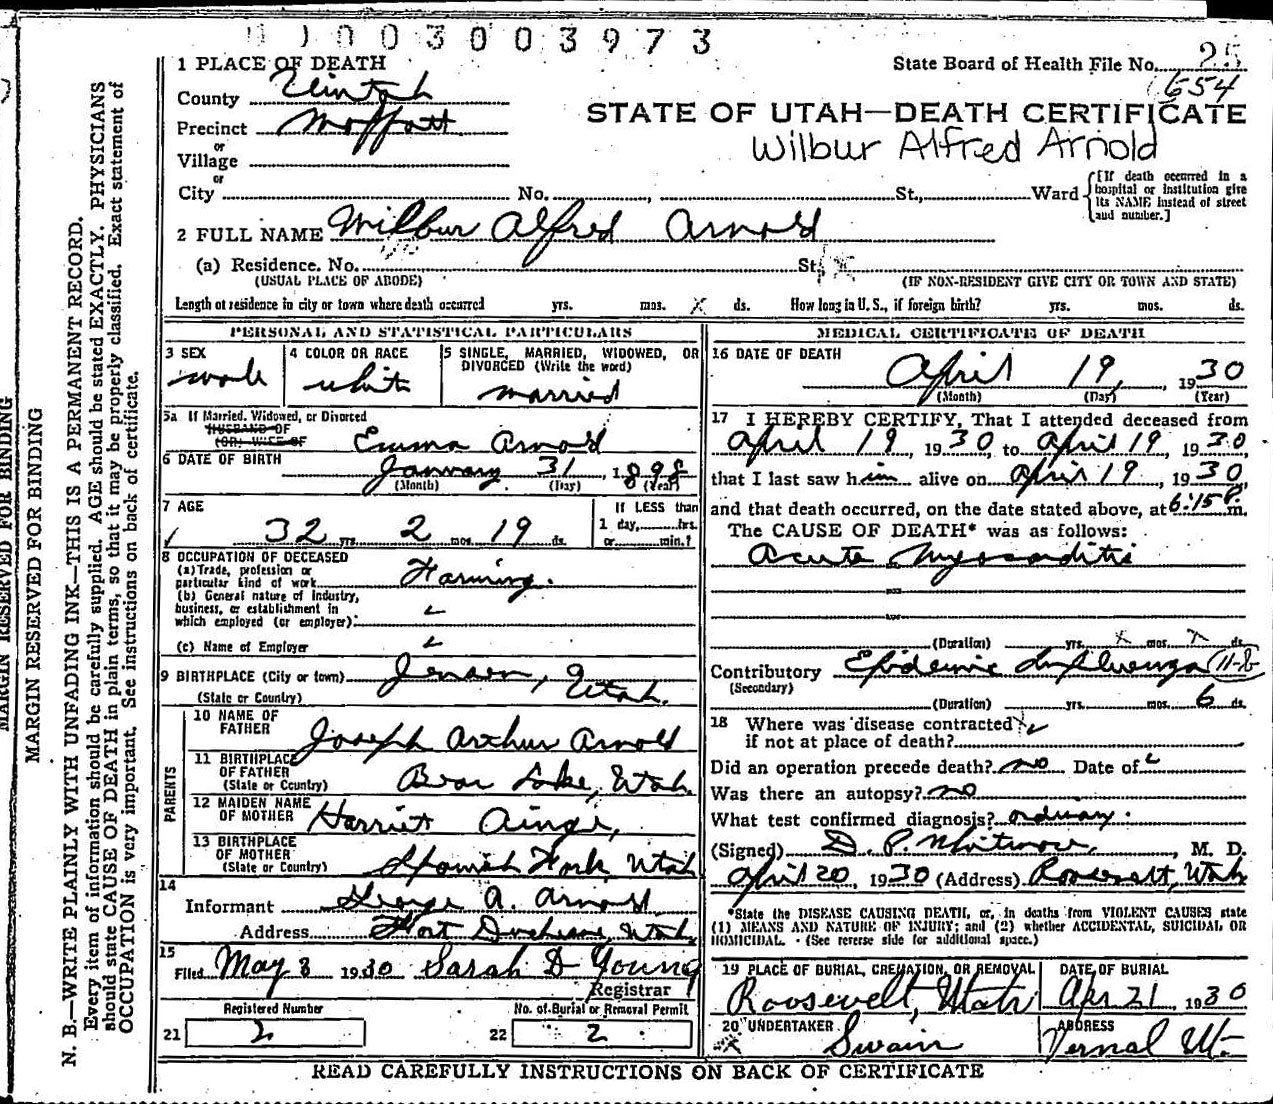 0003003973
1 PLACE OF DEATH
State Board of Health File No. 25
654
County Uintah
STATE OF UTAH—DEATH CERTIFICATE
Precinct Moffatt
Wilbur Alfred Arnold
or
Village
or
City No. , St., Ward
[If death occurred in a hospital or institution give its NAME instead of street and number.]
2 FULL NAME Wilbur Alfred Arnold
(a) Residence. No. St.
(USUAL PLACE OF ABODE) (IF NON-RESIDENT GIVE CITY OR TOWN AND STATE)
Length of residence in city or town where death occurred yrs. mos. X ds. How long in U. S., if foreign birth? yrs. mos. ds.
PERSONAL AND STATISTICAL PARTICULARS
3 SEX
male
4 COLOR OR RACE
white
5 SINGLE, MARRIED, WIDOWED, OR
DIVORCED (Write the word)
married
5a If Married, Widowed, or Divorced
HUSBAND OF
(OR) WIFE OF Emma Arnold
6 DATE OF BIRTH January 31, 1898
(Month) (Day) (Year)
7 AGE
32 yrs. 2 mos. 19 ds.
If LESS than
1 day, hrs.
or min.?
8 OCCUPATION OF DECEASED
(a) Trade, profession or
particular kind of work Farming.
(b) General nature of Industry,
business, or establishment in
which employed (or employer)
(c) Name of Employer
9 BIRTHPLACE (City or town) Jensen, Utah.
(State or Country)
PARENTS
10 NAME OF
FATHER Joseph Arthur Arnold
11 BIRTHPLACE
OF FATHER
(State or Country) Bear Lake, Utah.
12 MAIDEN NAME
OF MOTHER Harriet Ainge,
13 BIRTHPLACE
OF MOTHER
(State or Country) Spanish Fork, Utah
14
Informant George A. Arnold
Address Fort Duchesne, Utah.
15
Filed May 8 1930 Sarah D Young
Registrar
Registered Number
21 2
No. of Burial or Removal Permit
22 2
MEDICAL CERTIFICATE OF DEATH
16 DATE OF DEATH
April 19, 1930
(Month) (Day) (Year)
17 I HEREBY CERTIFY, That I attended deceased from
April 19, 1930, to April 19, 1930,
that I last saw him alive on April 19, 1930,
and that death occurred, on the date stated above, at 6:15 P. m.
The CAUSE OF DEATH* was as follows:
Acute Myocarditis
(Duration) yrs. X mos. ds.
Contributory Epidemic Influenza 11-b
(Secondary)
(Duration) yrs. mos. 6 ds.
18 Where was disease contracted
if not at place of death?
Did an operation precede death? no Date of
Was there an autopsy? no
What test confirmed diagnosis? ordinary.
(Signed) D. P. Whitmore, M. D.
April 20, 1930 (Address) Roosevelt, Utah
*State the DISEASE CAUSING DEATH, or, in deaths from VIOLENT CAUSES state
(1) MEANS AND NATURE OF INJURY; and (2) whether ACCIDENTAL, SUICIDAL OR
HOMICIDAL. (See reverse side for additional space.)
19 PLACE OF BURIAL, CREMATION, OR REMOVAL
Roosevelt, Utah
DATE OF BURIAL
Apr 21 1930
20 UNDERTAKER
Swain
ADDRESS
Vernal Ut.
READ CAREFULLY INSTRUCTIONS ON BACK OF CERTIFICATE
MARGIN RESERVED FOR BINDING
MARGIN RESERVED FOR BINDING
N. B.—WRITE PLAINLY WITH UNFADING INK—THIS IS A PERMANENT RECORD.
Every item of information should be carefully supplied. AGE should be stated EXACTLY. PHYSICIANS
should state CAUSE OF DEATH in plain terms, so that it may be properly classified. Exact statement of
OCCUPATION is very important. See instructions on back of certificate.